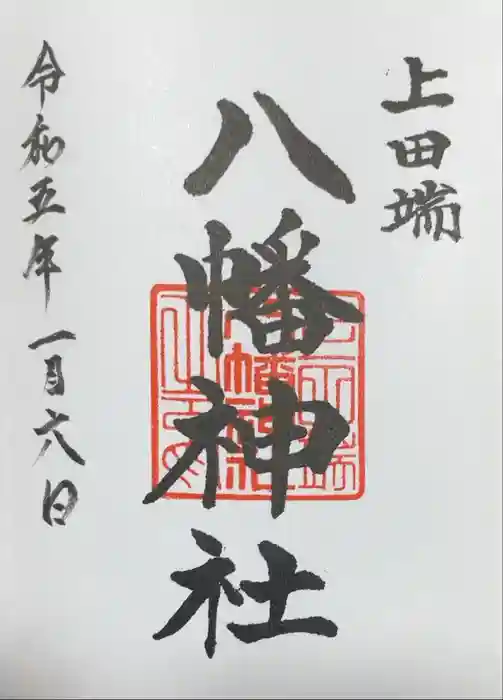 上田端
八幡神社
令和五年一月六日